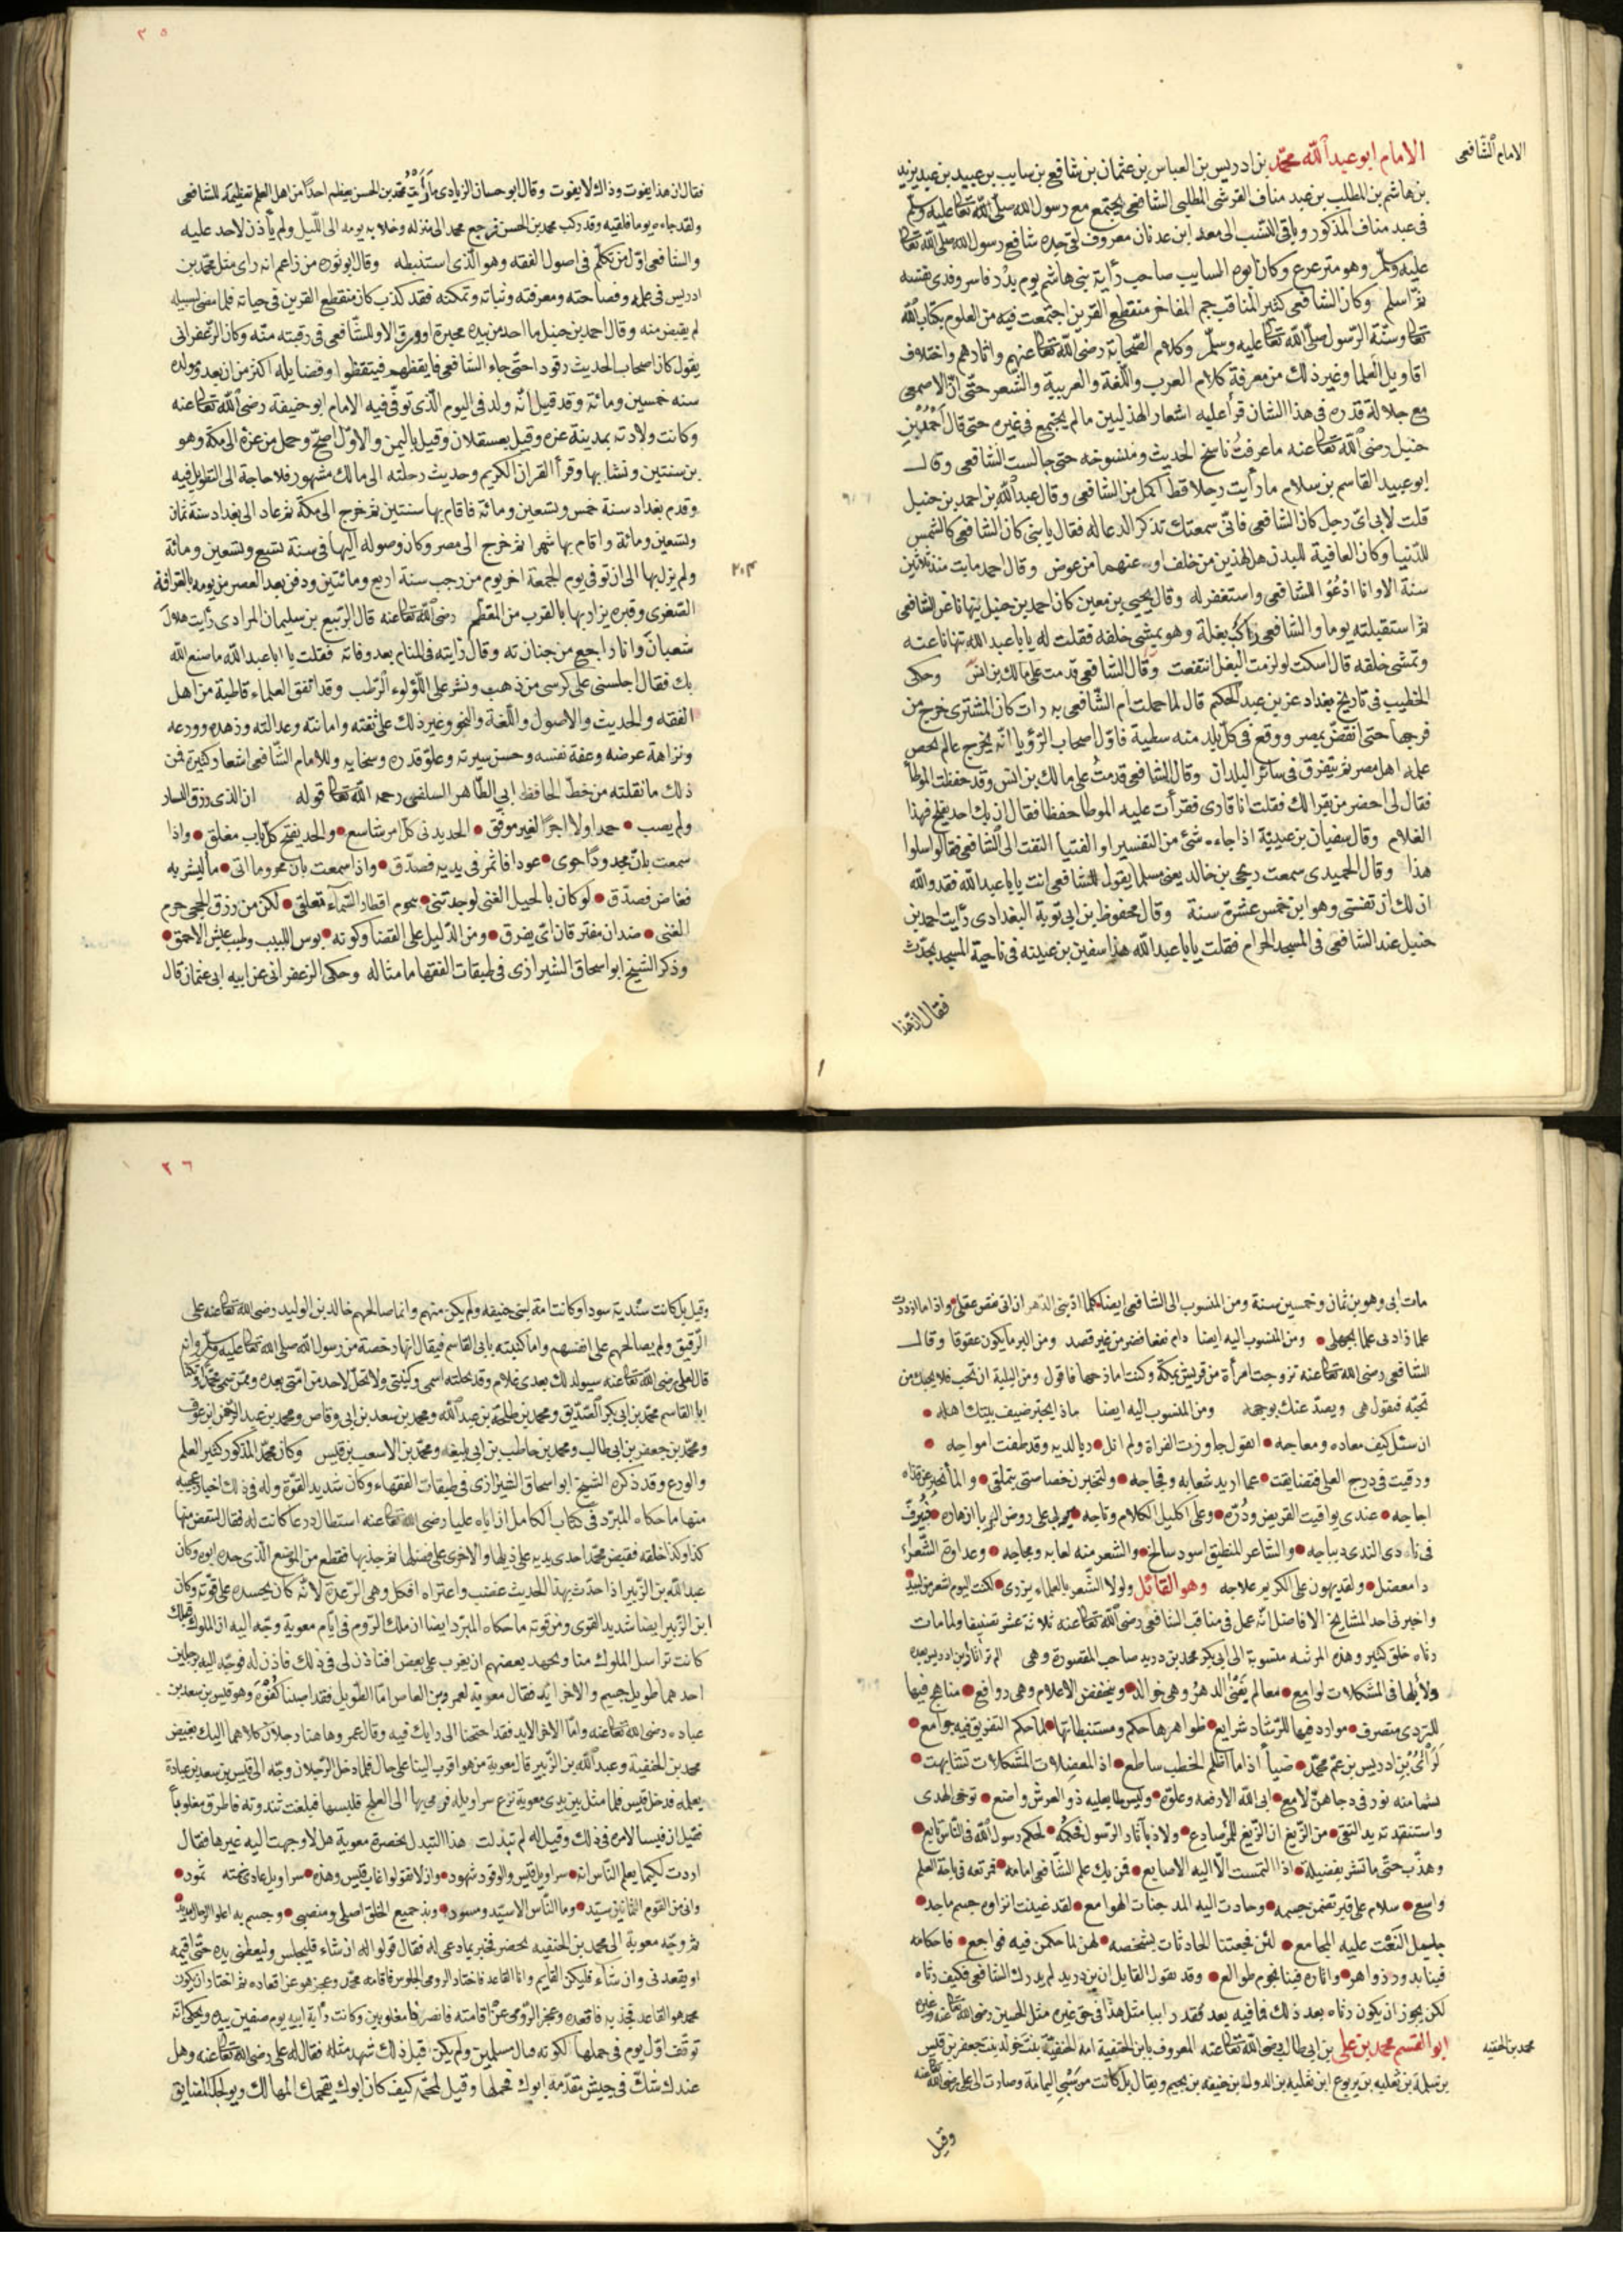 الامام الشافعى
الامام ابو عبد الله محمد بن ادريس بن العباس بن عثمان بن شافع بن سايب بن عبيد بن عبد يزيد
بن هاشم بن المطلب بن عبد مناف القرشى المطلبى الشافعى يجتمع مع رسول الله صلى الله تعالى عليه وسلم
فى عبد مناف المذكور وباقى النسب الى معد ابن عدنان معروف لقى جده شافع رسول الله صلى الله تعالى
عليه وسلم وهو مترعرع وكان ابوه السايب صاحب راية بنى هاشم يوم بدر فاسر وفدى نفسه
ثم اسلم وكان الشافعى كثير المناقب جم المفاخر منقطع القرين اجتمعت فيه من العلوم بكتاب الله
تعالى وسنة الرسول صلى الله تعالى عليه وسلم وكلام الصحابة رضى الله تعالى عنهم واثارهم واختلاف
اقاويل العلما وغير ذلك من معرفة كلام العرب واللغة والعربية والشعر حتى ان الاصمعى
مع جلالة قدره فى هذا الشان قرأ عليه اشعار الهذليين ما لم يجتمع فى غيره حتى قال احمد بن
حنبل رضى الله تعالى عنه ما عرفت ناسخ الحديث ومنسوخه حتى جالست الشافعى وقال
ابو عبيد القاسم بن سلام ما رأيت رجلا قط اكمل من الشافعى وقال عبد الله بن احمد بن حنبل
قلت لابى اى رجل كان الشافعى فانى سمعتك تذكر الدعا له فقال يا بنى كان الشافعى كالشمس
للدنيا وكان العافية للبدن هل لهذين من خلف او عنهما من عوض وقال احمد ما بت منذ ثلثين
سنة الا وانا ادعوا للشافعى واستغفر له وقال يحيى بن معين كان احمد بن حنبل ينهانا عن الشافعى
ثم استقبلته يوما والشافعى راكب بغلة وهو يمشى خلفه فقلت له يا ابا عبد الله تنهانا عنه
وتمشى خلفه قال اسكت لو لزمت البغل انتفعت وقال الشافعى قدمت على مالك بن انس وحكى
الخطيب فى تاريخ بغداد عن بن عبد الحكم قال لما حملت ام الشافعى به رات كان المشترى خرج من
فرجها حتى انقض بمصر ووقع فى كل بلد منه سطية فاول اصحاب الرؤيا انه يخرج عالم يخص
علمه اهل مصر ثم يتفرق فى سائر البلدان وقال الشافعى قدمت على مالك بن انس وقد حفظت الموطأ
فقال لى احضر من يقرا لك فقلت انا قارى فقرأت عليه الموطا حفظا فقال ان يك احد يفلح فهذا
الغلام وقال سفيان بن عيينة اذا جاءه شئ من التفسير او الفتيا التفت الى الشافعى فقال سلوا
هذا وقال الحميدى سمعت زنجى بن خالد يعنى مسلما يقول للشافعى افت يا ابا عبد الله فقد والله
ان لك ان تفتى وهو ابن خمس عشرة سنة وقال محفوظ بن ابى توبة البغدادى رأيت احمد بن
حنبل عند الشافعى فى المسجد الحرام فقلت يا ابا عبد الله هذا سفين بن عيينه فى ناحية المسجد يحدث
فقال ان هذا
٣٥
فقال ان هذا يفوت وذاك لا يفوت وقال ابو حسان الزيادى ما رأيت محمد بن الحسن يعظم احدا من اهل العلم تعظيمه للشافعى
ولقد جاءه يوما فلقيه وقد ركب محمد بن الحسن فرجع محمد الى منزله وخلا به يومه الى الليل ولم يأذن لاحد عليه
والشافعى اول من تكلم فى اصول الفقه وهو الذى استنبطه وقال ابو ثوره من زاعم انه راى مثل محمد بن
ادريس فى علمه وفصاحته ومعرفته وثباته وتمكنه فقد كذب كان منقطع القرين فى حياته فلما مضى لسبيله
لم يعتض منه وقال احمد بن حنبل ما احد من بيده محبرة او ورق الا وللشافعى فى رقبته منه وكان الزعفرانى
يقول كان اصحاب الحديث رقودا حتى جاء الشافعى فايقظهم فتيقظوا وفضايله اكثر من ان يعد ومولده
سنه خمسين ومائة وقد قيل انه ولد فى اليوم الذى توفى فيه الامام ابو حنيفة رضى الله تعالى عنه
وكانت ولادته بمدينة غزه وقيل بعسقلان وقيل باليمن والاول اصح وحمل من غزة الى مكة وهو
بن سنتين ونشا بها وقرأ القران الكريم وحديث رحلته الى مالك مشهور فلا حاجة الى التطويل فيه
وقدم بغداد سنة خمس وتسعين ومائة فاقام بها سنتين ثم خرج الى مكة ثم عاد الى بغداد سنة ثمان
وتسعين ومائة واقام بها شهرا ثم خرج الى مصر وكان وصوله اليها فى سنة تسع وتسعين ومائة
ولم يزل بها الى ان توفى يوم الجمعة اخر يوم من رجب سنة اربع ومائتين ودفن بعد العصر من يومه بالقرافة
٢٠٤
الصغرى وقبره يزار بها بالقرب من المقطم رضى الله تعالى عنه قال الربيع بن سليمان المرادى رأيت هلال
شعبان وانا راجع من جنازته وقال رايته فى المنام بعد وفاته فقلت يا ابا عبد الله ما صنع الله
بك فقال اجلسنى على كرسى من ذهب ونثر على اللؤلوء الرطب وقد اتفق العلماء قاطبة من اهل
الفقه والحديث والاصول واللغة والنحو وغير ذلك على ثقته وامانته وعدالته وزهده وورعه
ونزاهة عرضه وعفة نفسه وحسن سيرته وعلو قدره وسخايه وللامام الشافعى اشعار كثيرة فمن
ذلك ما نقلته من خط الحافظ ابى الطاهر السلفى رحمه الله تعالى قوله ان الذى رزق اليسار
ولم يصب • حمدا ولا اجرا لغير موفق • الجد يدنى كل امر شاسع • والجد يفتح كل باب مغلق • واذا
سمعت بان مجدودا حوى • عودا فاثمر فى يديه فصدق • واذا سمعت بان محروما اتى • ماء ليشربه
فغاض فصدق • لو كان بالحيل الغنى لوجدتنى • بنجوم اقطار السماء تعلقى • لكن من رزق الحجى حرم
الغنى • ضدان مفترقان اى تفرق • ومن الدليل على القضا وكونه • بوس اللبيب وطيب عيش الاحمق •
وذكر الشيخ ابو اسحاق الشيرازى فى طبقات الفقها ما مثاله وحكى الزعفرانى عن ابيه ابى عثمان قال
مات ابى وهو بن ثمان وخمسين سنة ومن المنسوب الى الشافعى ايضا كلما ادبنى الدهر ارانى نقص عقلى • واذا ما ازددت
علما زادنى علما بجهلى • ومن المنسوب اليه ايضا رام نفعا فضر من غير قصد ومن البر ما يكون عقوقا وقال
الشافعى رضى الله تعالى عنه تزوجت امرأة من قريش بمكة وكنت امازحها فاقول ومن البلية ان تحب فلا يحبك من
تحبه فتقول هى ويصد عنك بوجهه ومن المنسوب اليه ايضا ماذا يخبر ضيف بيتك اهله •
ان سئل كيف معاده ومعاجه • ايقول جاوزت الفراة ولم انل • ريا لديه وقد طغت امواجه •
ورقيت فى درج العلى فتضايقت • عما اريد شعابه وفجاجه • ولتخبرن خصاصتى بتملقى • والماء يخبر عن قذاه
زجاجه • عندى يواقيت القريض ودره • وعلى اكليل الكلام وتاجه • تربى على روض الربا ازهاره • ويرف
فى نادى الندى ديباجه • والشاعر المنطيق اسود سالخ • والشعر منه لعابه ومجاجه • وعداوة الشعراء
داء معضل • ولقد يهون على الكريم علاجه وهو القائل ولولا الشعر بالعلماء يزرى • لكنت اليوم اشعر من لبيد
واخبرنى احد المشايخ الافاضل انه عمل فى مناقب الشافعى رضى الله تعالى عنه ثلاثة عشر تصنيفا ولما مات
رثاه خلق كثير وهذه المرثيه منسوبة الى ابى بكر محمد بن دريد صاحب المقصورة وهى الم تر اثار ابن ادريس بعده
دلايلها فى المشكلات لوامع • معالم يفنى الدهر وهى خوالد • وينخفض الاعلام وهى روافع • مناهج فيها
للهدى متصرف • موارد فيها للرشاد شرايع • ظواهرها حكم ومستنبطاتها • لما حكم التفريق فيه جوامع •
لرأى بن ادريس بن عم محمد • ضيأ اذا ما اظلم الخطب ساطع • اذ المعضلات المشكلات تشابهت •
سما منه نور فى دجاهن لامع • ابى الله الا رفعه وعلوه • وليس لما يعليه ذو العرش واضع • توخى الهدى
واستنقذته يد التقى • من الزيغ ان الزيغ للمرء صادع • ولاذ بآثار الرسول فحكمه • لحكم رسول الله فى الناس تابع •
وهذب حتى ما تشر بفضيلة • اذا التمست الا اليه الاصابع • فمن يك علم الشافعى امامه • فمرتعه فى باحة العلم
واسع • سلام على قبر تضمن جسمه • وجادت اليه المدجنات الهوامع • لقد غيبت اثراوه جسم ماجد •
جليل النعت عليه المجامع • لئن فجعتنا الحادثات بشخصه • لهن لما حكمن فيه فواجع • فاحكامه
فينا بدور زواهر • واثاره فينا نجوم طوالع • وقد يقول القايل ان بن دريد لم يدرك الشافعى فكيف رثاه
لكن يجوز ان يكون رثاه بعد ذلك فما فيه بعد فقد راينا مثل هذا فى حق غيره مثل الحسين رضى الله تعالى عنه وغيره
محمد بن الحنفيه
ابو القسم محمد بن على بن ابى طالب رضى الله تعالى عنه المعروف بابن الحنفية امه الحنفية بنت خوله بنت جعفر بن قيس
بن سلمة بن ثعلبه بن يربوع ابن ثعلبه بن الدول بن حنيفه بن لجيم ويقال بل كانت من سبى اليمامة وصارت الى على رضى الله تعالى عنه
وقيل
٣٦
وقيل بل كانت سندية سودا وكانت امة لبنى حنيفه ولم يكن منهم وانما صالحهم خالد بن الوليد رضى الله تعالى عنه على
الرقيق ولم يصالحهم على انفسهم واما كنيته بابى القاسم فيقال انها رخصة من رسول الله صلى الله تعالى عليه وسلم وانه
قال لعلى رضى الله تعالى عنه سيولد لك بعدى غلام وقد نحلته اسمى وكنيتى ولا تحل لاحد من امتى بعده وممن تسمى محمدا وتكنى
ابا القاسم محمد بن ابى بكر الصديق ومحمد بن طلحة بن عبد الله ومحمد بن سعد بن ابى وقاص ومحمد بن عبد الرحمن ابن عوف
ومحمد بن جعفر بن ابى طالب ومحمد بن حاطب بن ابى بليغه ومحمد بن الاسعب بن قيس وكان محمد المذكور كثير العلم
والورع وقد ذكره الشيخ ابو اسحاق الشيرازى فى طبقات الفقهاء وكان شديد القوة وله فى ذلك اخبار عجيبه
منها ما حكاه المبرد فى كتاب الكامل ان اباه عليا رضى الله تعالى عنه استطال درعا كانت له فقال لينقص منها
كذا وكذا حلقه فقبض محمد احدى يديه على ذيلها والاخرى على فضلها ثم جذبها فقطع من الموضع الذى حده ابوه وكان
عبد الله بن الزبير اذا حدث بهذا الحديث غضب واعتراه افكل وهى الرعدة لانه كان يحسده على قوته وكان
ابن الزبير ايضا شديد القوى ومن قوته ما حكاه المبرد ايضا ان ملك الروم فى ايام معوية وجه اليه ان الملوك قبلك
كانت تراسل الملوك منا ويجهد بعضهم ان يغرب على بعض افتاذن لى فى ذلك فاذن له فوجه اليه برجلين
احدهما طويل جسيم والاخر ايد فقال معوية لعمرو بن العاص اما الطويل فقد اصبنا كفوه وهو قيس بن سعد بن
عباده رضى الله تعالى عنه واما الاخر الايد فقد احتجنا الى رايك فيه وقال عمرو هاهنا رجلان كلاهما اليك بغيض
محمد بن الحنفية وعبد الله بن الزبير قال معوية من هو اقرب الينا على حال فلما دخل الرجلان وجه الى قيس بن سعد بن عبادة
يعلمه فدخل قيس فلما مثل بين يدى معوية نزع سراويله فرمى بها الى العلج فلبسها فبلغت ثندوته فاطرق مغلوبا
فقيل ان قيسا لامه فى ذلك وقيل له لم تبذلت هذا التبذل بحضرة معوية هل لا وجهت اليه غيرها فقال
اردت لكيما يعلم الناس انه • سراويل قيس والوفود شهود • وان لا يقولوا غاب قيس وهذه • سراويل عادى نمته ثمود •
وانى من القوم الثمانين سيد • وما الناس الا سيد ومسود • وبذ جميع الخلق اصلى ومنصبى • وجسم به اعلو الرجال مديد •
ثم وجه معوية الى محمد بن الحنفيه فحضر فخبر بما دعى له فقال قولوا له ان شاء فليجلس وليعطنى يده حتى اقيمه
او يقعدنى وان شاء فليكن القايم وانا القاعد فاختار الرومى الجلوس فاقامه محمد وعجز هو عن اقعاده ثم اختار ان يكون
محمد هو القاعد فجذبه فاقعده وعجز الرومى عن اقامته فانصرفا مغلوبين وكانت رأية ابيه يوم صفين بيده ويحكى انه
توقف اول يوم فى حملها لكونه قتال مسلمين ولم يكن قبل ذلك شهد مثله فقال له على رضى الله تعالى عنه وهل
عندك شك فى جيش مقدمه ابوك فحملها وقيل لمحمد كيف كان ابوك يقحمك المهالك ويولجك المضايق